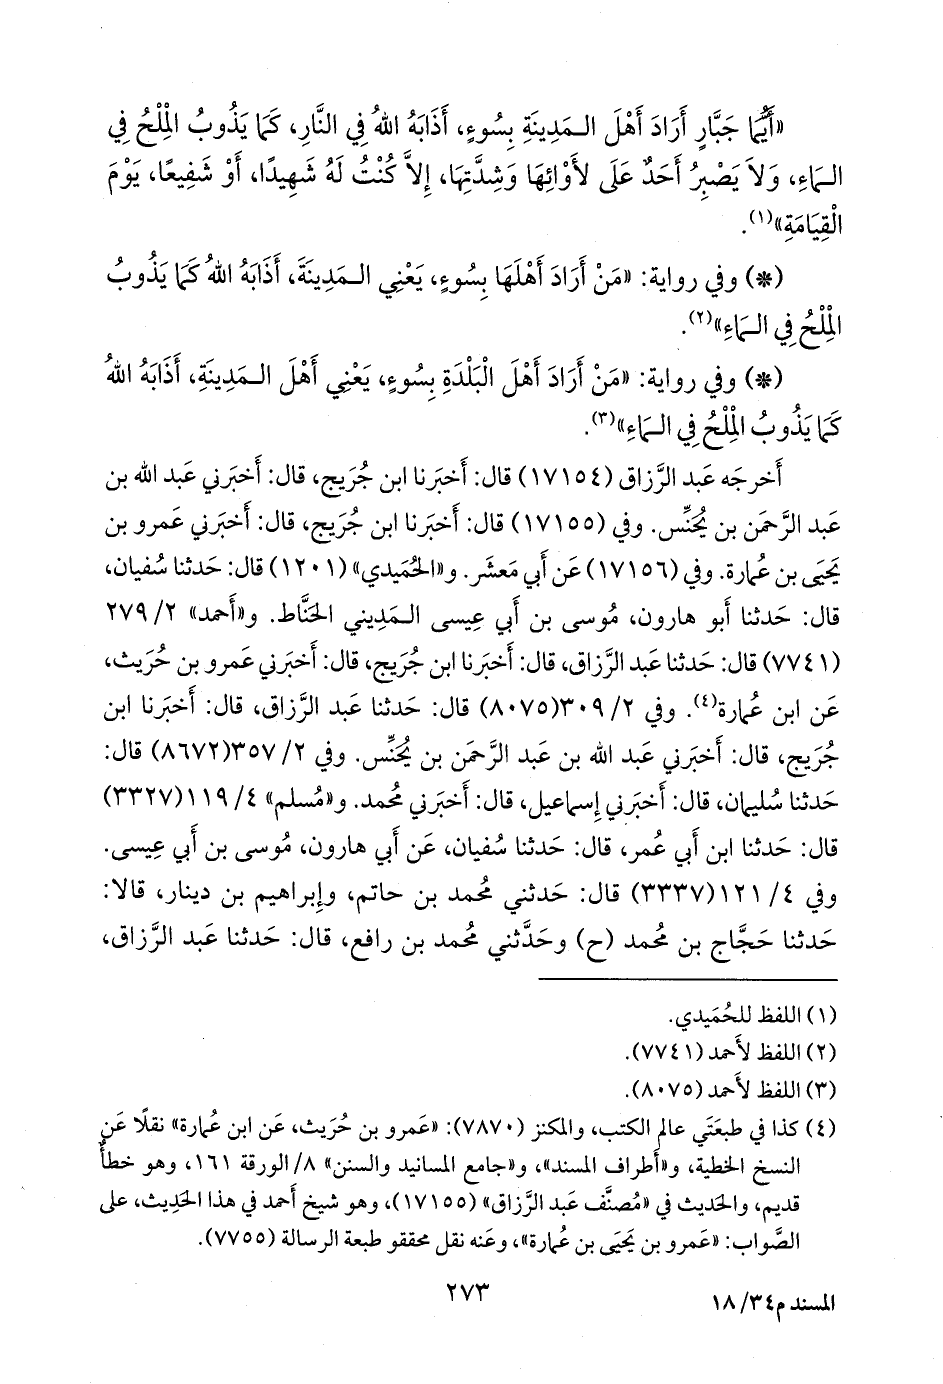 «أَيُّمَا جَبَّارٍ أَرَادَ أَهْلَ الـمَدِينَةِ بِسُوءٍ، أَذَابَهُ اللهُ فِي النَّارِ، كَمَا يَذُوبُ الْمِلْحُ فِي
الـمَاءِ، وَلاَ يَصْبِرُ أَحَدٌ عَلَى لأْوَائِهَا وَشِدَّتِهَا، إِلاَّ كُنْتُ لَهُ شَهِيدًا، أَوْ شَفِيعًا، يَوْمَ
الْقِيَامَةِ»(١).
(*) وفي رواية: «مَنْ أَرَادَ أَهْلَهَا بِسُوءٍ، يَعْنِي الـمَدِينَةَ، أَذَابَهُ اللهُ كَمَا يَذُوبُ
الْمِلْحُ فِي الـمَاءِ»(٢).
(*) وفي رواية: «مَنْ أَرَادَ أَهْلَ الْبَلْدَةِ بِسُوءٍ، يَعْنِي أَهْلَ الـمَدِينَةِ، أَذَابَهُ اللهُ
كَمَا يَذُوبُ الْمِلْحُ فِي الـمَاءِ»(٣).
أَخرجَه عَبد الرَّزاق (١٧١٥٤) قال: أَخبَرنا ابن جُرَيج، قال: أَخبَرني عَبد الله بن
عَبد الرَّحمَن بن يُحَنِّس. وفي (١٧١٥٥) قال: أَخبَرنا ابن جُرَيج، قال: أَخبَرني عَمرو بن
يَحيَى بن عُمارة. وفي (١٧١٥٦) عَن أَبي مَعشَر. و«الحُمَيدي» (١٢٠١) قال: حَدثنا سُفيان،
قال: حَدثنا أَبو هارون، مُوسى بن أَبي عِيسى الـمَديني الحَنَّاط. و«أَحمد» ٢/ ٢٧٩
(٧٧٤١) قال: حَدثنا عَبد الرَّزاق، قال: أَخبَرنا ابن جُرَيج، قال: أَخبَرني عَمرو بن حُرَيث،
عَن ابن عُمارة(٤). وفي ٢/ ٣٠٩(٨٠٧٥) قال: حَدثنا عَبد الرَّزاق، قال: أَخبَرنا ابن
جُرَيج، قال: أَخبَرني عَبد الله بن عَبد الرَّحمَن بن يُحَنِّس. وفي ٢/ ٣٥٧(٨٦٧٢) قال:
حَدثنا سُليمان، قال: أَخبَرني إِسماعيل، قال: أَخبَرني مُحمد. و«مُسلم» ٤/ ١١٩(٣٣٢٧)
قال: حَدثنا ابن أَبي عُمر، قال: حَدثنا سُفيان، عَن أَبي هارون، مُوسى بن أَبي عِيسى.
وفي ٤/ ١٢١(٣٣٣٧) قال: حَدثني مُحمد بن حاتم، وإِبراهيم بن دينار، قالا:
حَدثنا حَجَّاج بن مُحمد (ح) وحَدَّثني مُحمد بن رافع، قال: حَدثنا عَبد الرَّزاق،
(١) اللفظ للحُمَيدي.
(٢) اللفظ لأَحمد (٧٧٤١).
(٣) اللفظ لأَحمد (٨٠٧٥).
(٤) كذا في طبعَتَي عالم الكتب، والمكنز (٧٨٧٠): «عَمرو بن حُرَيث، عَن ابن عُمارة» نقلًا عَن
النسخ الخطية، و«أَطراف المسند»، و«جامع المسانيد والسنن» ٨/ الورقة ١٦١، وهو خطأٌ
قديم، والحديث في «مُصنَّف عَبد الرَّزاق» (١٧١٥٥)، وهو شيخ أَحمد في هذا الحَدِيث، على
الصَّواب: «عَمرو بن يَحيَى بن عُمارة»، وعَنه نقل محققو طبعة الرسالة (٧٧٥٥).
٢٧٣
المسند م٣٤/ ١٨